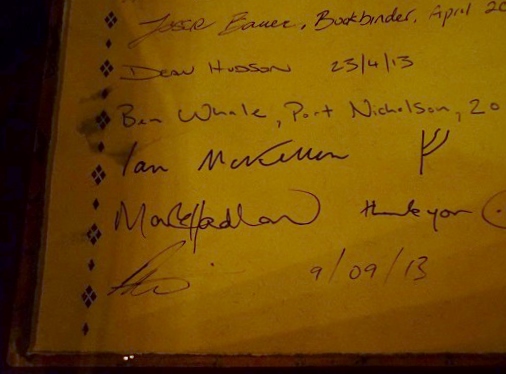 Bauer, Bookbinder, April 20
Dean Hudson 23/4/13
Ben Whale, Port Nicholson, 20
Ian McKellen ᚠ
Mark Hadlow thank you
9/09/13